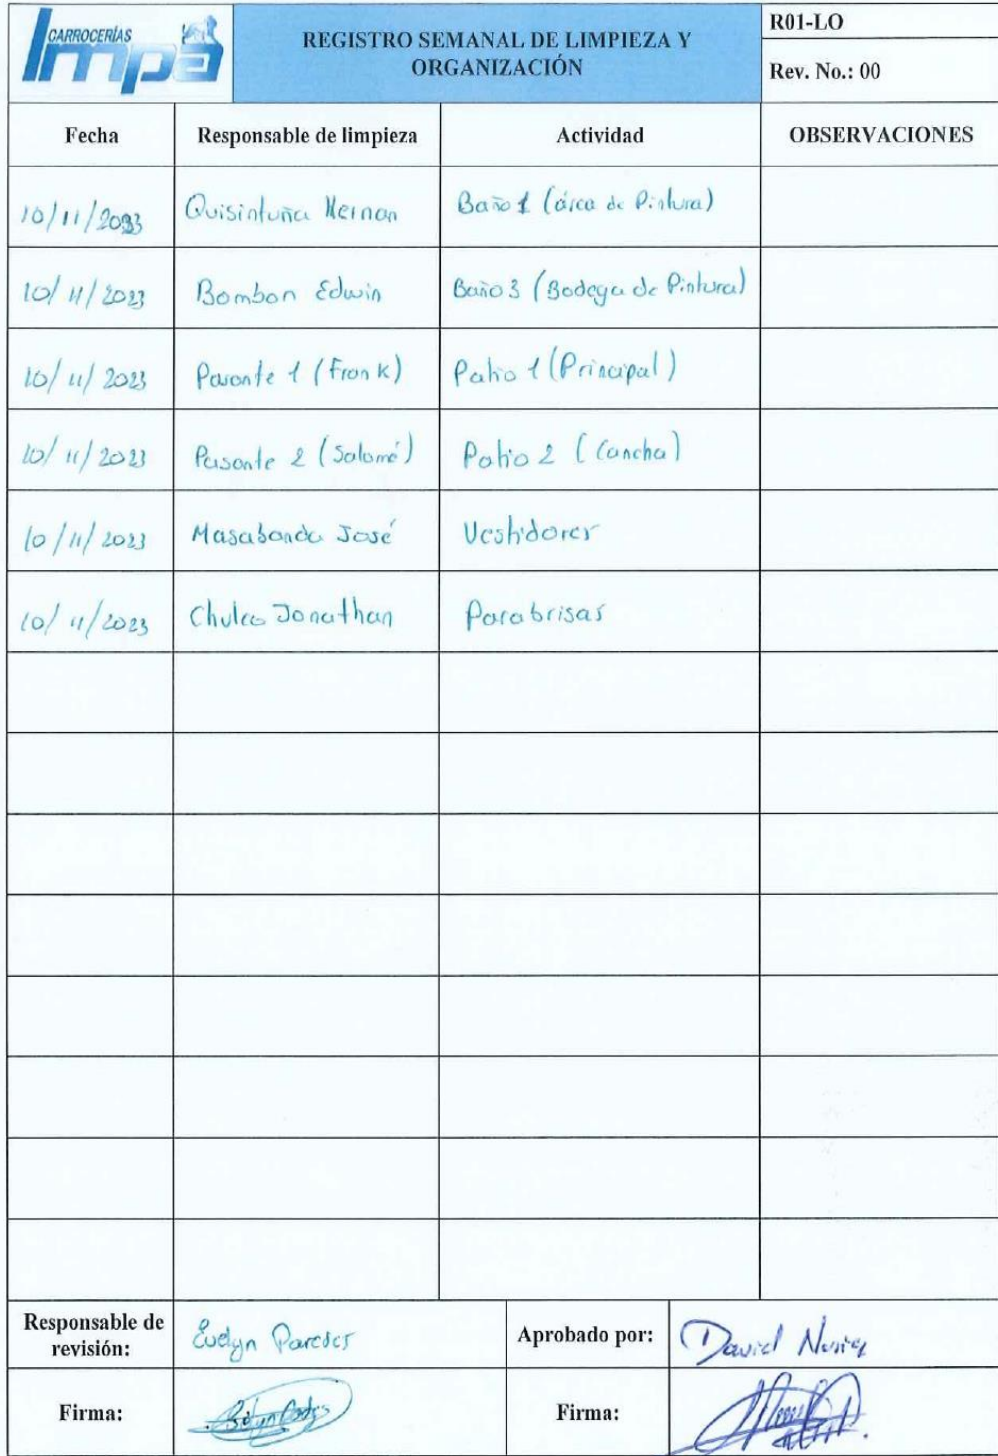 CARROCERÍAS
Impa
REGISTRO SEMANAL DE LIMPIEZA Y
ORGANIZACIÓN
R01-LO
Rev. No.: 00
Fecha Responsable de limpieza Actividad OBSERVACIONES
10/11/2023 Quisintuña Hernan Baño 1 (área de Pintura)
10/11/2023 Bombon Edwin Baño 3 (Bodega de Pintura)
10/11/2023 Pasante 1 (Frank) Patio 1 (Principal)
10/11/2023 Pasante 2 (Salomé) Patio 2 (Cancha)
10/11/2023 Masabanda José Vestidores
10/11/2023 Chulco Jonathan Parabrisas
Responsable de
revisión:
Evelyn Paredes
Aprobado por:
David Nuñez
Firma:
Firma: